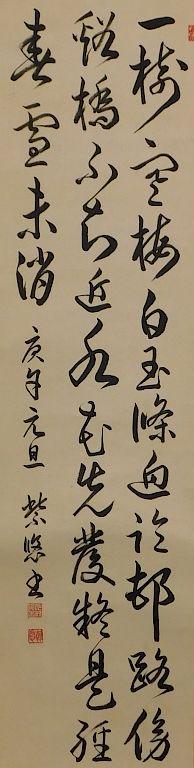 一樹寒梅白玉條迥臨邨路傍
谿橋不知近水花先發疑是經
春雪未消 庚元旦 紫悠書